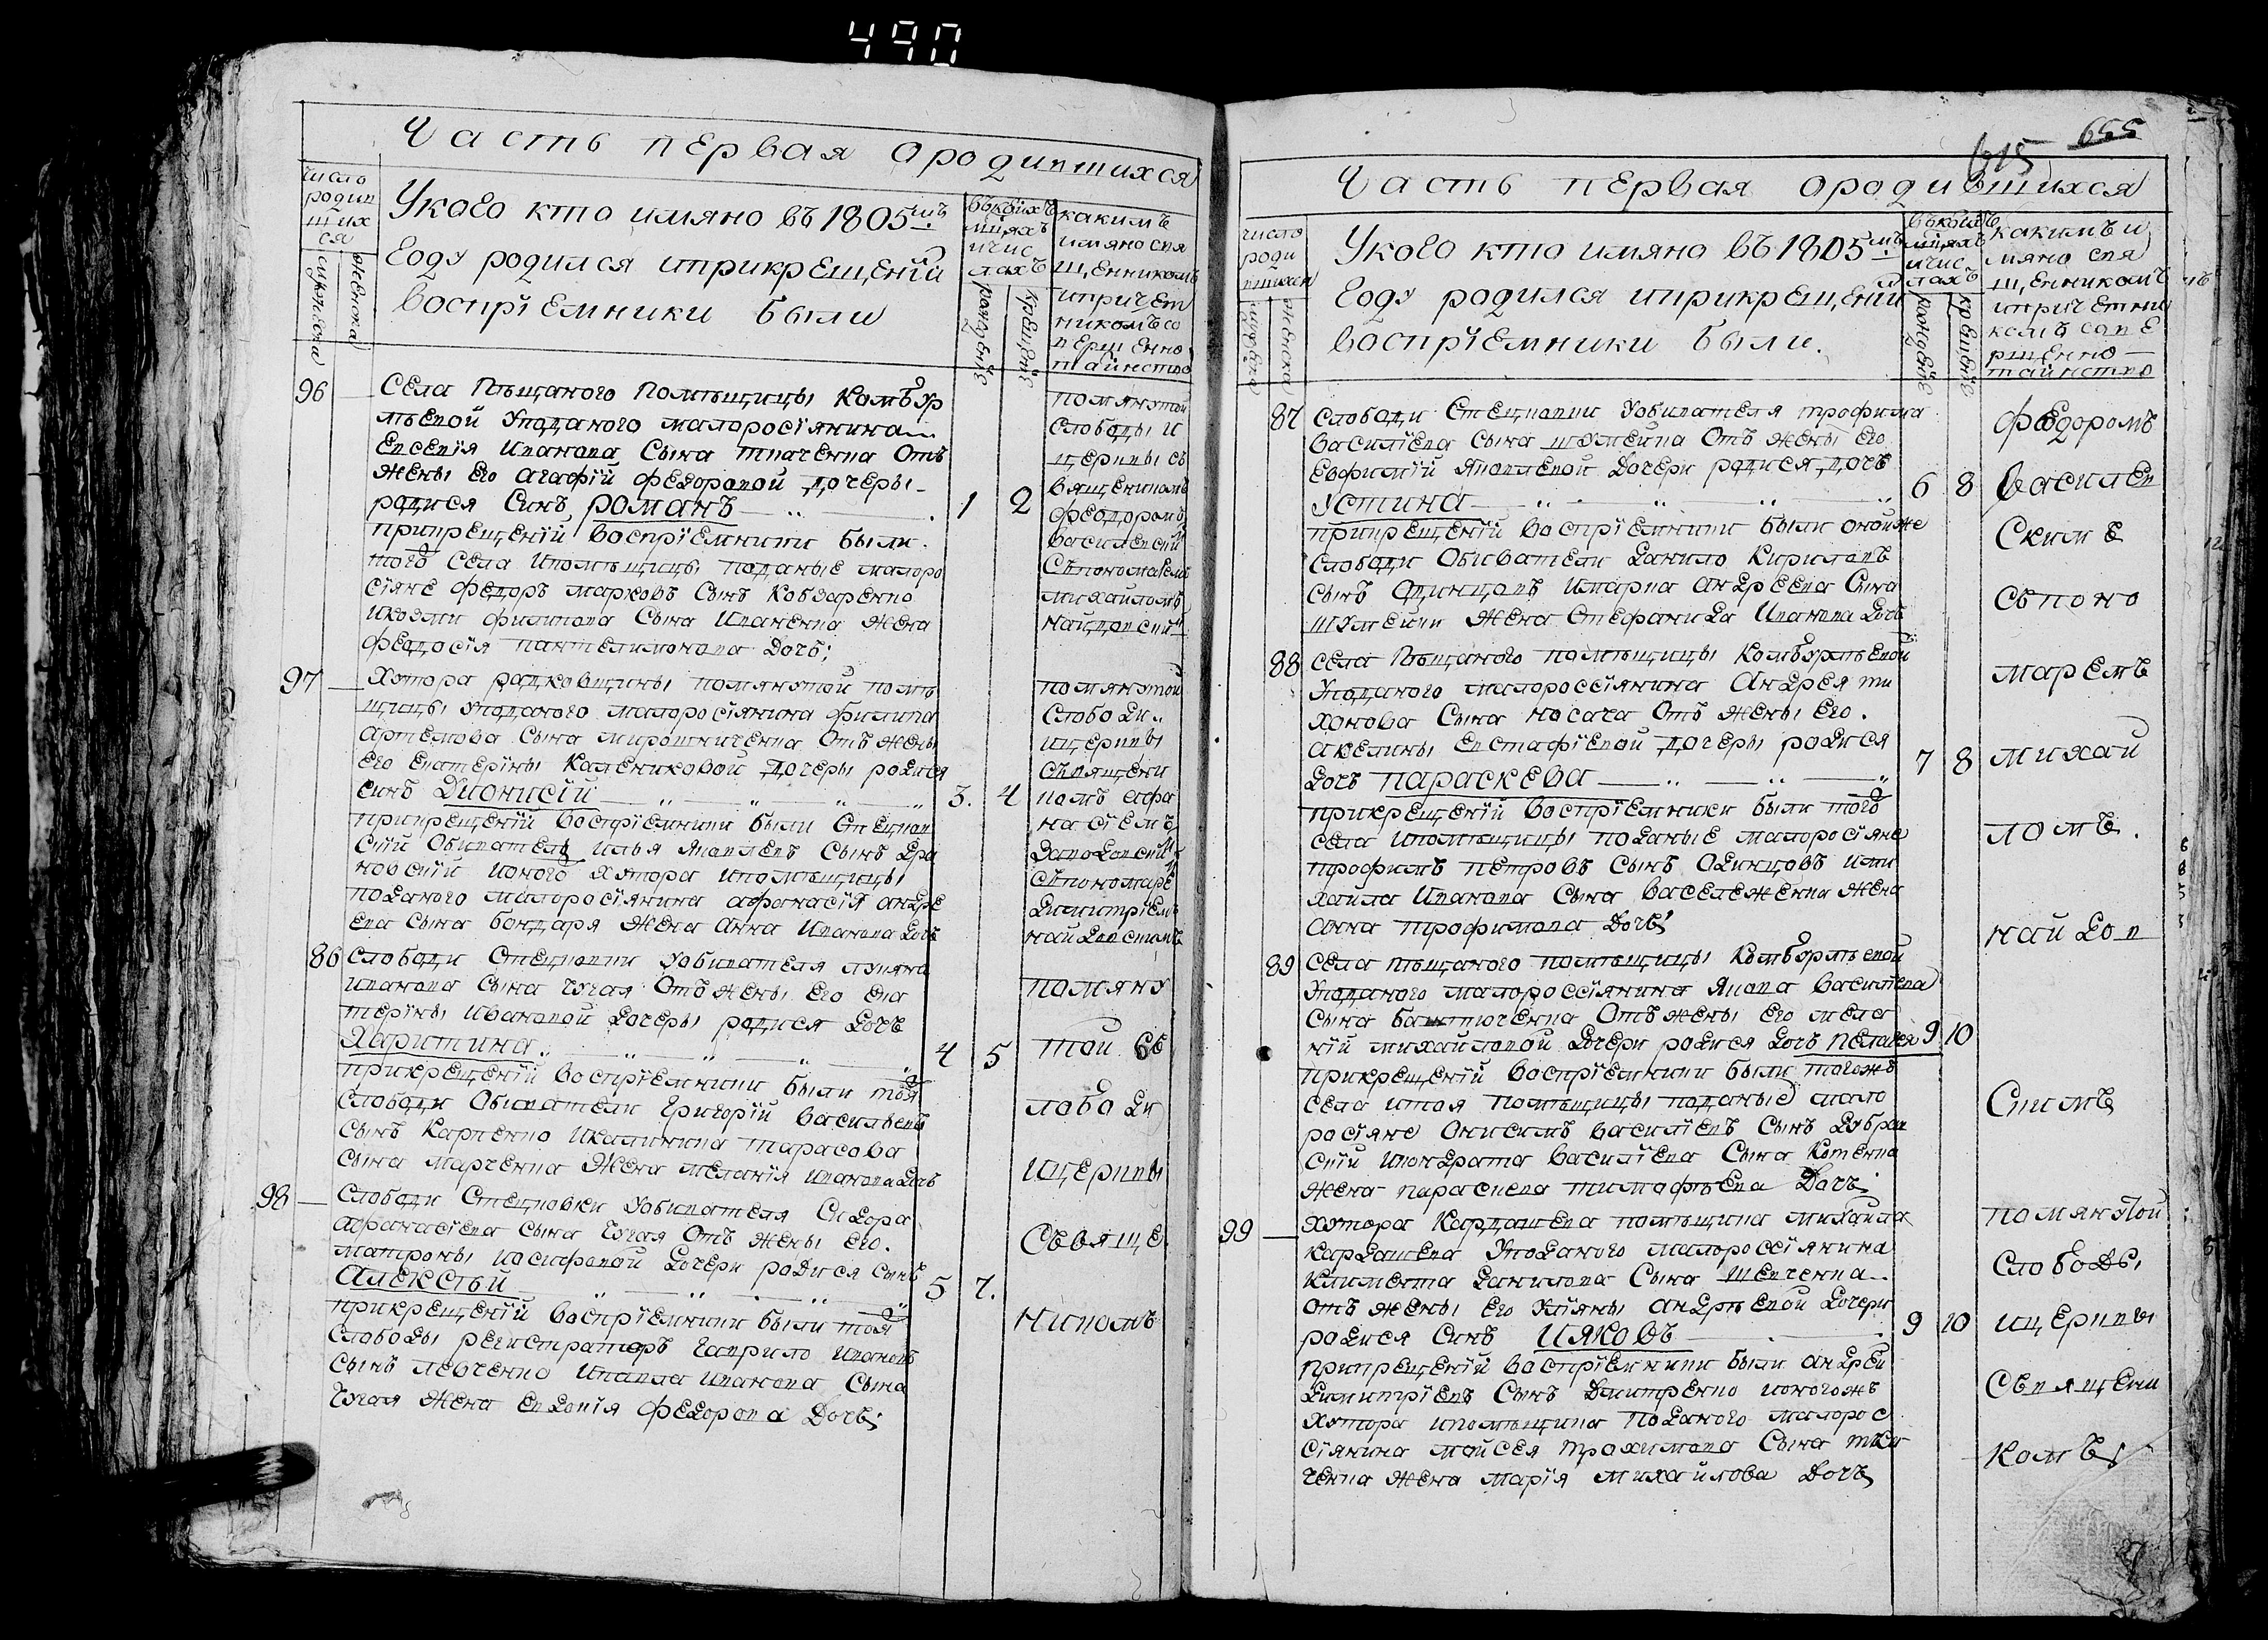 490
Часть первая ородившихся
число
родив
ших
ся
мужеска
женска
Укого кто имяно въ 1805мъ
Году родился ипрѝкрещенїи
воспрїемники были
въкоихъ
мцяхъ
ичис
лахъ
рожденїе
крещенїе
какимъ
имяно свя
щенникомъ
ипричет
никомъ со
вершенно
таинство
96
Села Пѣщаного Помѣщицы Камбур
лѣевой Уподаного малоросїянина
Евсевїя Иванова Сына ткаченка Отъ
жены Его Агафїй федоровой дочеры
родися Синъ, романъ
1 2
прикрещенїй воспрїемники были
того села ипомѣщицы поданые малоро
сїяне федоръ марковъ Сынъ Кобзаренко
икозми филипова Сына Иваненка жена
федосїя пантелимонова Дочъ;
помянутой
Слободы и
церквы съ
вященикомъ
феодоромъ
василевскимъ
Съпономаремъ
михаиломъ
найдовскимъ
97
Хутора радковщины помянутой помѣ
щицы уподаного малоросїянина филипа
Артемова Сына мирошниченка Отъ жены
Его Екатерины Калениковой дочеры родися
Синъ Дионисїй
3. 4
прикрещенїй воспрїемники были Стецков
скїй Обиватель илья Яковлевъ Сынъ Дра
новскїй ионого хутора ипомѣщицы
поданого малоросїянина Афанасїя андре
ева сына бондаря жена Анна Иванова Дочъ
помянутой
Слободи
ицерквы
съвящени
комъ афа
насїемъ
Съпономаре
Димитрїемъ
найдовскимъ
86
Слободи Стецковки Уобивателя лукяна
Иванова Сына чугая Отъ жены Его Ека
терїны Ивановой Дочеры родися Дочъ
Харитина
4 5
прикрещенїй воспрїемники были тоя
Слободи Обиватели Григорїй васильевъ
Сынъ Карпенко Икалиника тарасова
Сына марченка жена меланїя Иванова Дочъ
помяну
той Сь
лобо Ди
ицерквы
Съвяще
нікомъ
98
Слободи Стецковки Уобивателя Сидора
Афанасїева Сына чугая Отъ жены Его
матроны иосифовой Дочери родися сынъ
Алексѣй
5 7.
прикрещенїй воспрїемники были тоя
Слободы регистраторъ Гаврило Ивановъ
Сынъ левченко Ипавла Иванова Сына
чугая жена Евдокїя федорова Дочъ;
615 655
Часть первая ородившихся
число
роди
вшихся
мужеска
женска
Укого кто имяно въ 1805мъ
Году родился ипрѝкрещенїи
воспрїемники были.
въкоихъ
мцяхъ
ичис
лахъ
рожденїе
крещенїе
какимъ и
мяно свя
щенникомъ
ипричетни
комъ сове
ршенно
таинство
87
Слободи Стецковки Уобивателя трофима
васильева сына шумейка Отъ жены Его
Евфимїй Яковлевой Дочери родися дочъ
Устина
6 8
прикрещенїй воспрїемники были онойже
слободи Обиватели Данило Кириловъ
сынъ Одинцовъ Имарка андреева Сына
шумейки жена Стефанида Иванова Дочъ
88
села Пѣщаного помѣщицы Комбурлѣевой
Уподаного малороссїянина Андрея ти
хонова Сына носача Отъ жены Его
акелины Евстафїевой дочеры родися
Дочъ параскева
7 8
прикрещенїй воспрїемники были того
села ипомѣщицы поданые малоросїяне
трофимъ петровъ Сынъ Одинцовъ ими
хайла Иванова Сына васележенка жена
Анна трофимова Дочъ;
89
села пѣщаного помѣщицы Комбурлѣевой
Уподаного малороссїянина Якова василїева
Сына Отъ жены Его мела
нїй михайловой Дочери родися Дочъ пелагея
9 10
прикрещенїй воспрїемники были тогожъ
села итоя помѣщицы поданые мало
росїяне Онисимъ василїевъ Сынъ Дубров
скїй Икондрата василїева Сына Котенка
жена параскева тимофѣева Дочъ;
федоромъ
василев
скимъ
Съпоно
маремъ
михай
ломъ.
найдов
скимъ
99
Хутора Кардашева помѣщика михайла
Кардашева Уподаного малороссїянина
Климента Данилова Сына Шевченка
Отъ жены Его Улїяны андрѣевой Дочери
родися СинъИяковъ
9 10
прикрещенїй воспрїемники были андрей
Димитрїевъ Сынъ Дмитренко ионогожъ
хутора ипомѣщика поданого малорос
сїянина мойсея трохимова Сына тка
ченка жена марїя михайлова Дочъ
помянутой
Слободы
ицерквы
Священи
комъ